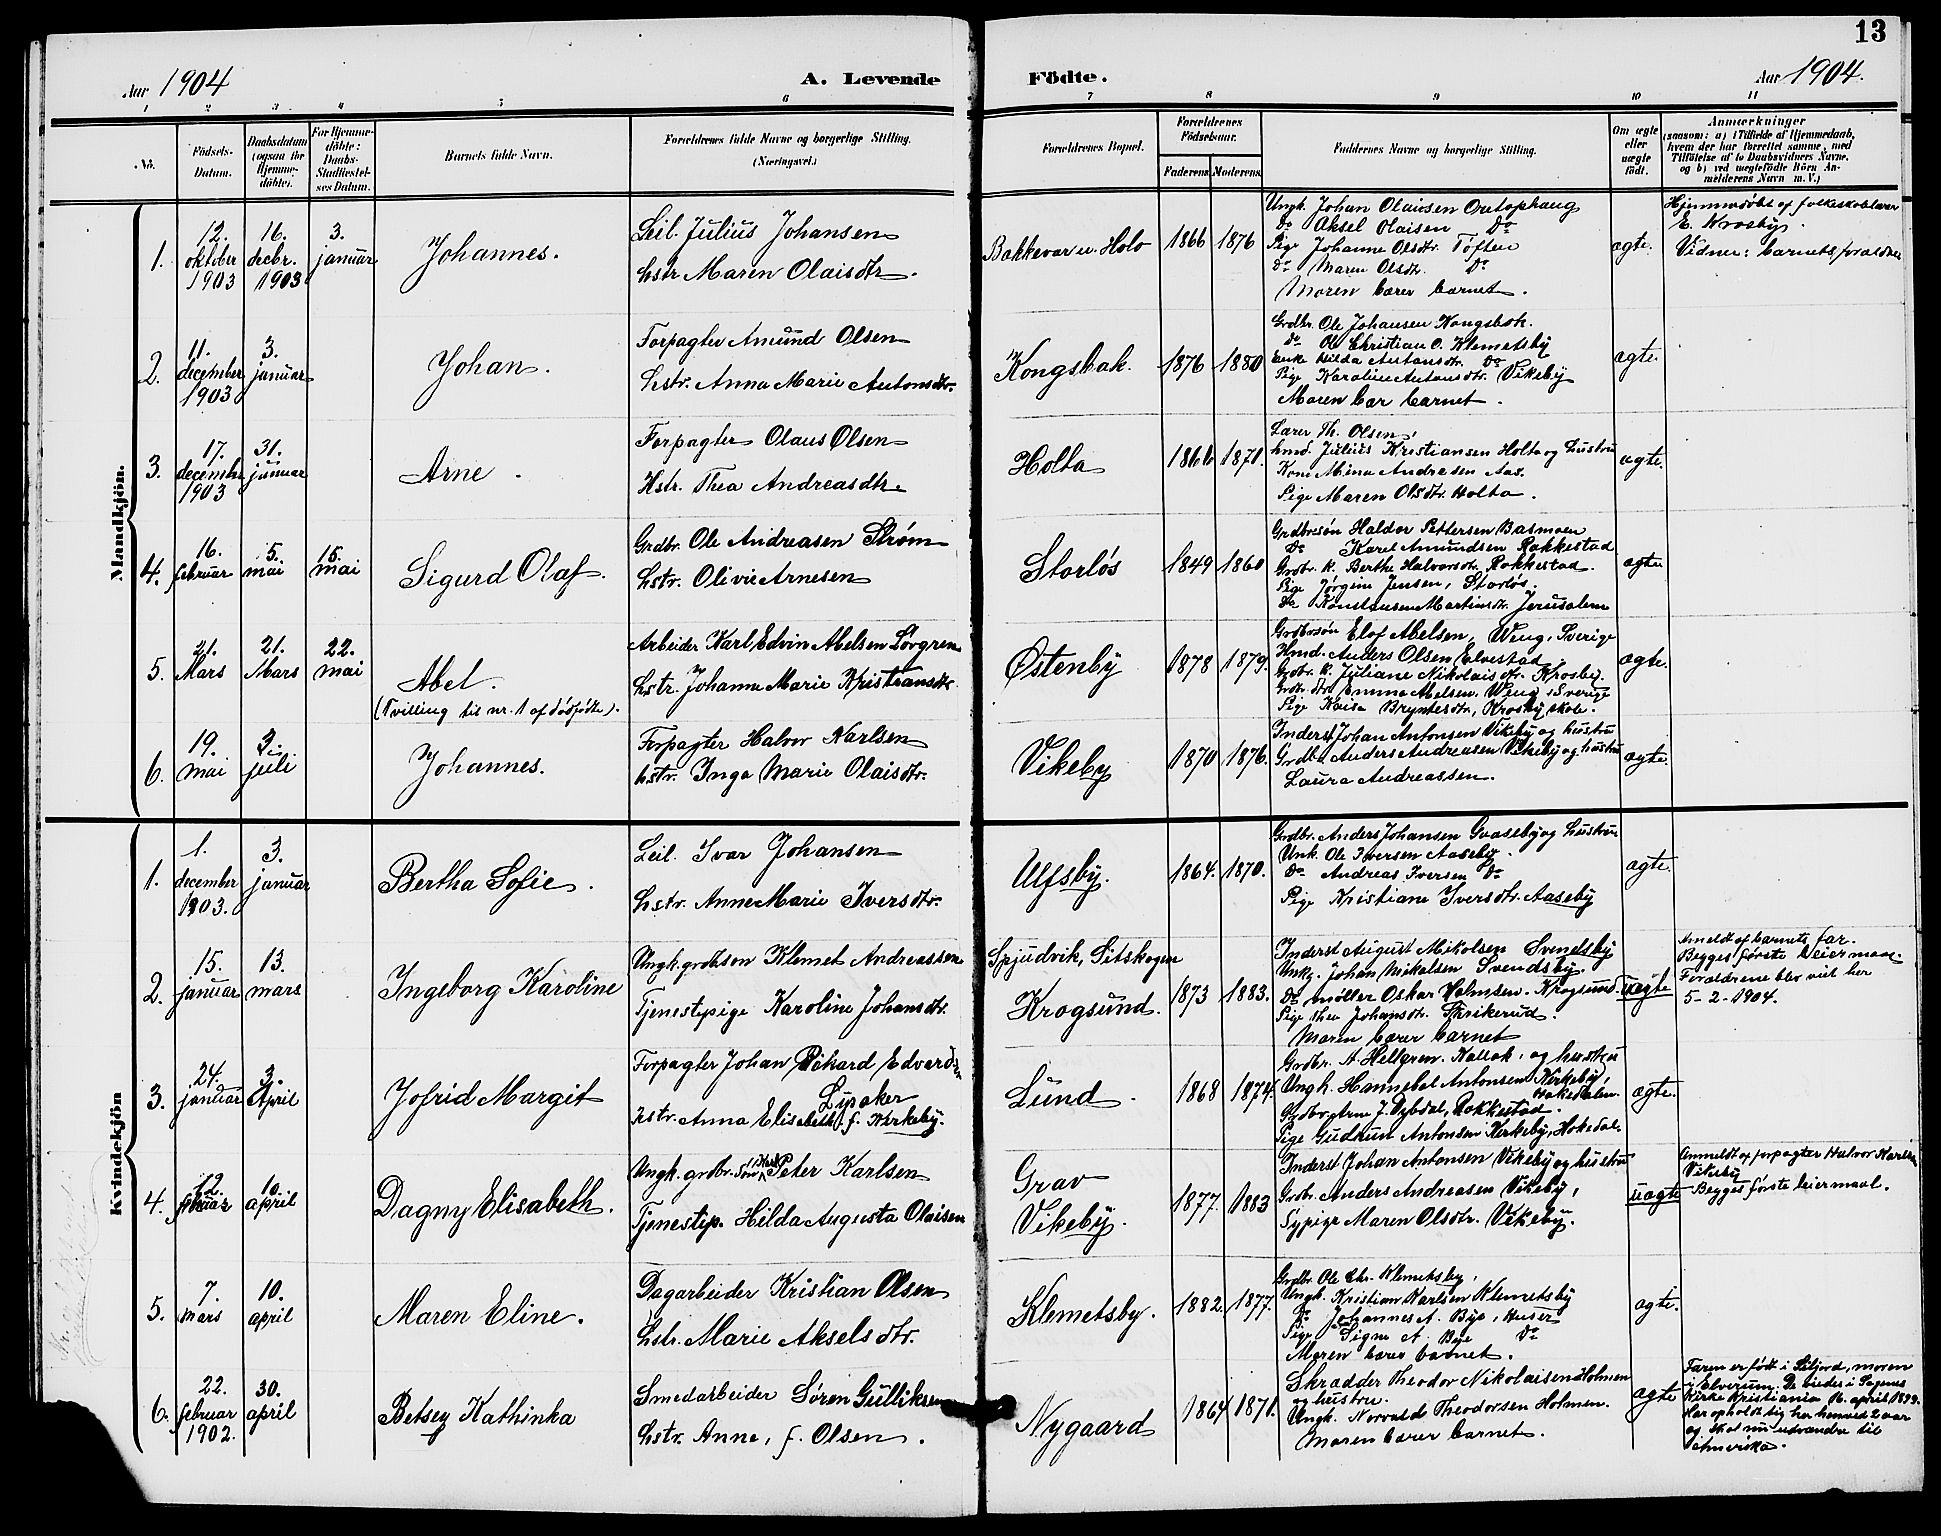 13
Aar 1904
A. Levende
Födte.
Aar 1904.
1 2 3 4 5 6 7 8 9 10 11
No.
Födsels-
Datum.
Daabsdatum
(ogsaa for
Hjemme-
döbte).
For Hjemme-
döbte:
Daabs-
Stadfæstel-
ses Datum.
Barnets fulde Navn.
Forældrenes fulde Navne og borgerlige Stilling.
(Næringsvei.)
Forældrenes Bopæl.
Forældrenes
Födselsaar.
Faderens Moderens
Faddernes Navne og borgerlige Stilling.
Om ægte
eller
uægte
födt.
Anmærkninger
(saasom: a) i Tilfælde af Hjemmedaab,
hvem der har forrettet samme, med
Tilföielse af to Daabsvidners Navne,
og b) ved uægtefödte Börn An-
melderens Navn m. V.)
Mandkjön.
1.
12.
oktober
1903
16.
decbr.
1903
3.
januar
Johannes.
Leil. Julius Johansen
hstr. Maren Olaisdtr.
Bakkevar u. Holo
1866 1876
Ungk. Johan Olaisen
Do Aksel Olaisen Do
Pige Johanne Olsdtr. Toften
Do Maren Olsdtr. Do
Moren bærer barnet.
ægte.
Hjemmedöbt af folkeskolelærer
E. Krosby.
Vidner: barnets forældre
2.
11.
december
1903
3.
januar
Johan.
Forpagter Amund Olsen
hstr. Anna Marie Antonsdtr.
Kongsbak.
1876 1880
Grdbr. Ole Johansen Kongsbak.
do Ole Christian O. Klemetsby
Enke Hilda Antonsdtr. Do
Pige Karoline Antonsdtr. Vikeby
Moren bær barnet.
ægte.
3.
17.
december
1903
31.
januar
Arne.
Forpagter Olaus Olsen
Hstr. Thea Andreasdtr.
Holta
1866 1871.
Lærer Th. Olsen,
hmd. Julius Kristiansen Holta og hustru
Kone Mina Andresen Aas.
Pige Maren Olsdtr. Holta.
ægte.
4.
16.
februar
5.
mai
15.
mai
Sigurd Olaf.
Grdbr. Ole Andreasen Ström
hstr. Olivie Arnesen
Storlös
1849 1860
Grdbrsön Haldor Pettersen Basmoen
Do Karel Amundsen Rakkestad
Grdbr. k. Berthe Halvorsdtr. Rakkestad.
Pige Jörgine Jensen, Storlös.
Do Konstanse Martinsdtr. Jerusalem
ægte
5.
21.
Mars
21.
Mars
22.
mai
Abel.
(Tvilling til nr. 1 af dödfödte).
Arbeider Karl Edvin Abelsen Lövgren
hstr. Johanne Marie Kristiansdtr.
Östenby
1878 1879.
Grdbrsön Elof Abelsen, Weng, Sverige
Hmd. Anders Olsen Elvestad
Grdbr. k. Juliane Nikolaisdtr. Krosby.
Grdbr. dtr. Emma Abelsen. Weng, Sverige
Pige Kaisa Bryntesdtr., Krosby skole.
ægte.
6.
19.
mai
3.
juli
Johannes.
Forpagter Halvor Karlsen
hstr. Inga Marie Olaisdtr.
Vikeby
1870 1876.
Inderst Johan Antonsen Vikeby og hustru
Grdbr. Anders Andreasen Vikeby og hustru
Laura Andreassen.
ægte.
Kvindekjön
1.
1.
december
1903.
3.
januar
Bertha Sofie.
Leil. Ivar Johansen
hstr. Anne Marie Iversdtr.
Ulfsby.
1864. 1870.
Grdbr. Anders Johansen Gaaseby og hustru
Unk. Ole Iversen Aaseby.
Do Andreas Iversen Do
Pige Kristiane Iversdtr. Aaseby
ægte.
2.
15.
januar
13.
mars
Ingeborg Karoline
Ungk. grdbsön Klemet Andreassen
Tjenestepige Karoline Johansdtr.
Spjudvik, Sitskogen
Krogsund.
1873 1883.
Inderst August Mikolsen Svendsby
Unkg. Johan Mikalsen Svendsby.
Do möller Oskar Holmsen. Krogsund.
Pige Thea Johansdtr. Skrikerud.
Moren bærer barnet
uægte
Anmeldt af barnets far.
Begges förste leiermaal.
Forældrene blev viet her
5-2-1904.
3.
24.
januar
3.
April
Jofrid Margit
Forpagter Johan Rikard Edvard
Lysaker
hstr. Anna Elisabeth f. Kirkeby.
Lund.
1868 1874
Grdbr. A. Hellgren. Kallak, og hustru
Ungk. Hannebal Antonsen Kirkeby,
Hakedalen.
Grdbr. Arne J. Dybdal, Rakkestad.
Pige Gudrun Antonsen Kirkeby, Hakedal.
ægte.
4.
12.
februar
10.
april
Dagny Elisabeth.
Ungk. grdbr. sön Karl Peter Karlsen
Tjenestep. Hilda Augusta Olaisen
Grav
Vikeby.
1877. 1883
Inderst Johan Antonsen Vikeby og hustru
Grdbr. Anders Andreasen Vikeby,
Sypige Maren Olsdtr. Vikeby.
uægte
Anmeldt af forpagter Halvor Karlsen
Vikeby
Begges förste leiermaal.
5.
7.
mars
10.
april
Maren Eline.
Dagarbeider Kristian Olsen
hstr. Marie Akselsdtr.
Klemetsby.
1882. 1877.
Grdbr. Ole Chr. Klemetsby,
Ungk. Kristian Karlsen Klemetsby
Do Johannes A. Bye, Huser
Pige Signe A. Bye Do
Moren bærer barnet.
ægte.
6.
22.
februar
1902.
30.
april
Betsey Kathinka
Smedarbeider Sören Gulliksen
hstr. Anne, f. Olsen.
Nygaard
1864 1871.
Skradder Theodor Nikolaisen Holmen
og hustru.
Ungk. Norvald Theodorsen Holmen.
Moren bærer barnet.
ægte
Faren er födt i Siljord, moren
i Elverum. De viedes i Sagenes
Kirke Kristiania 16. april 1893.
Har opholdt sig her henved 2 aar
og skal nu udvandre til
Amerika.